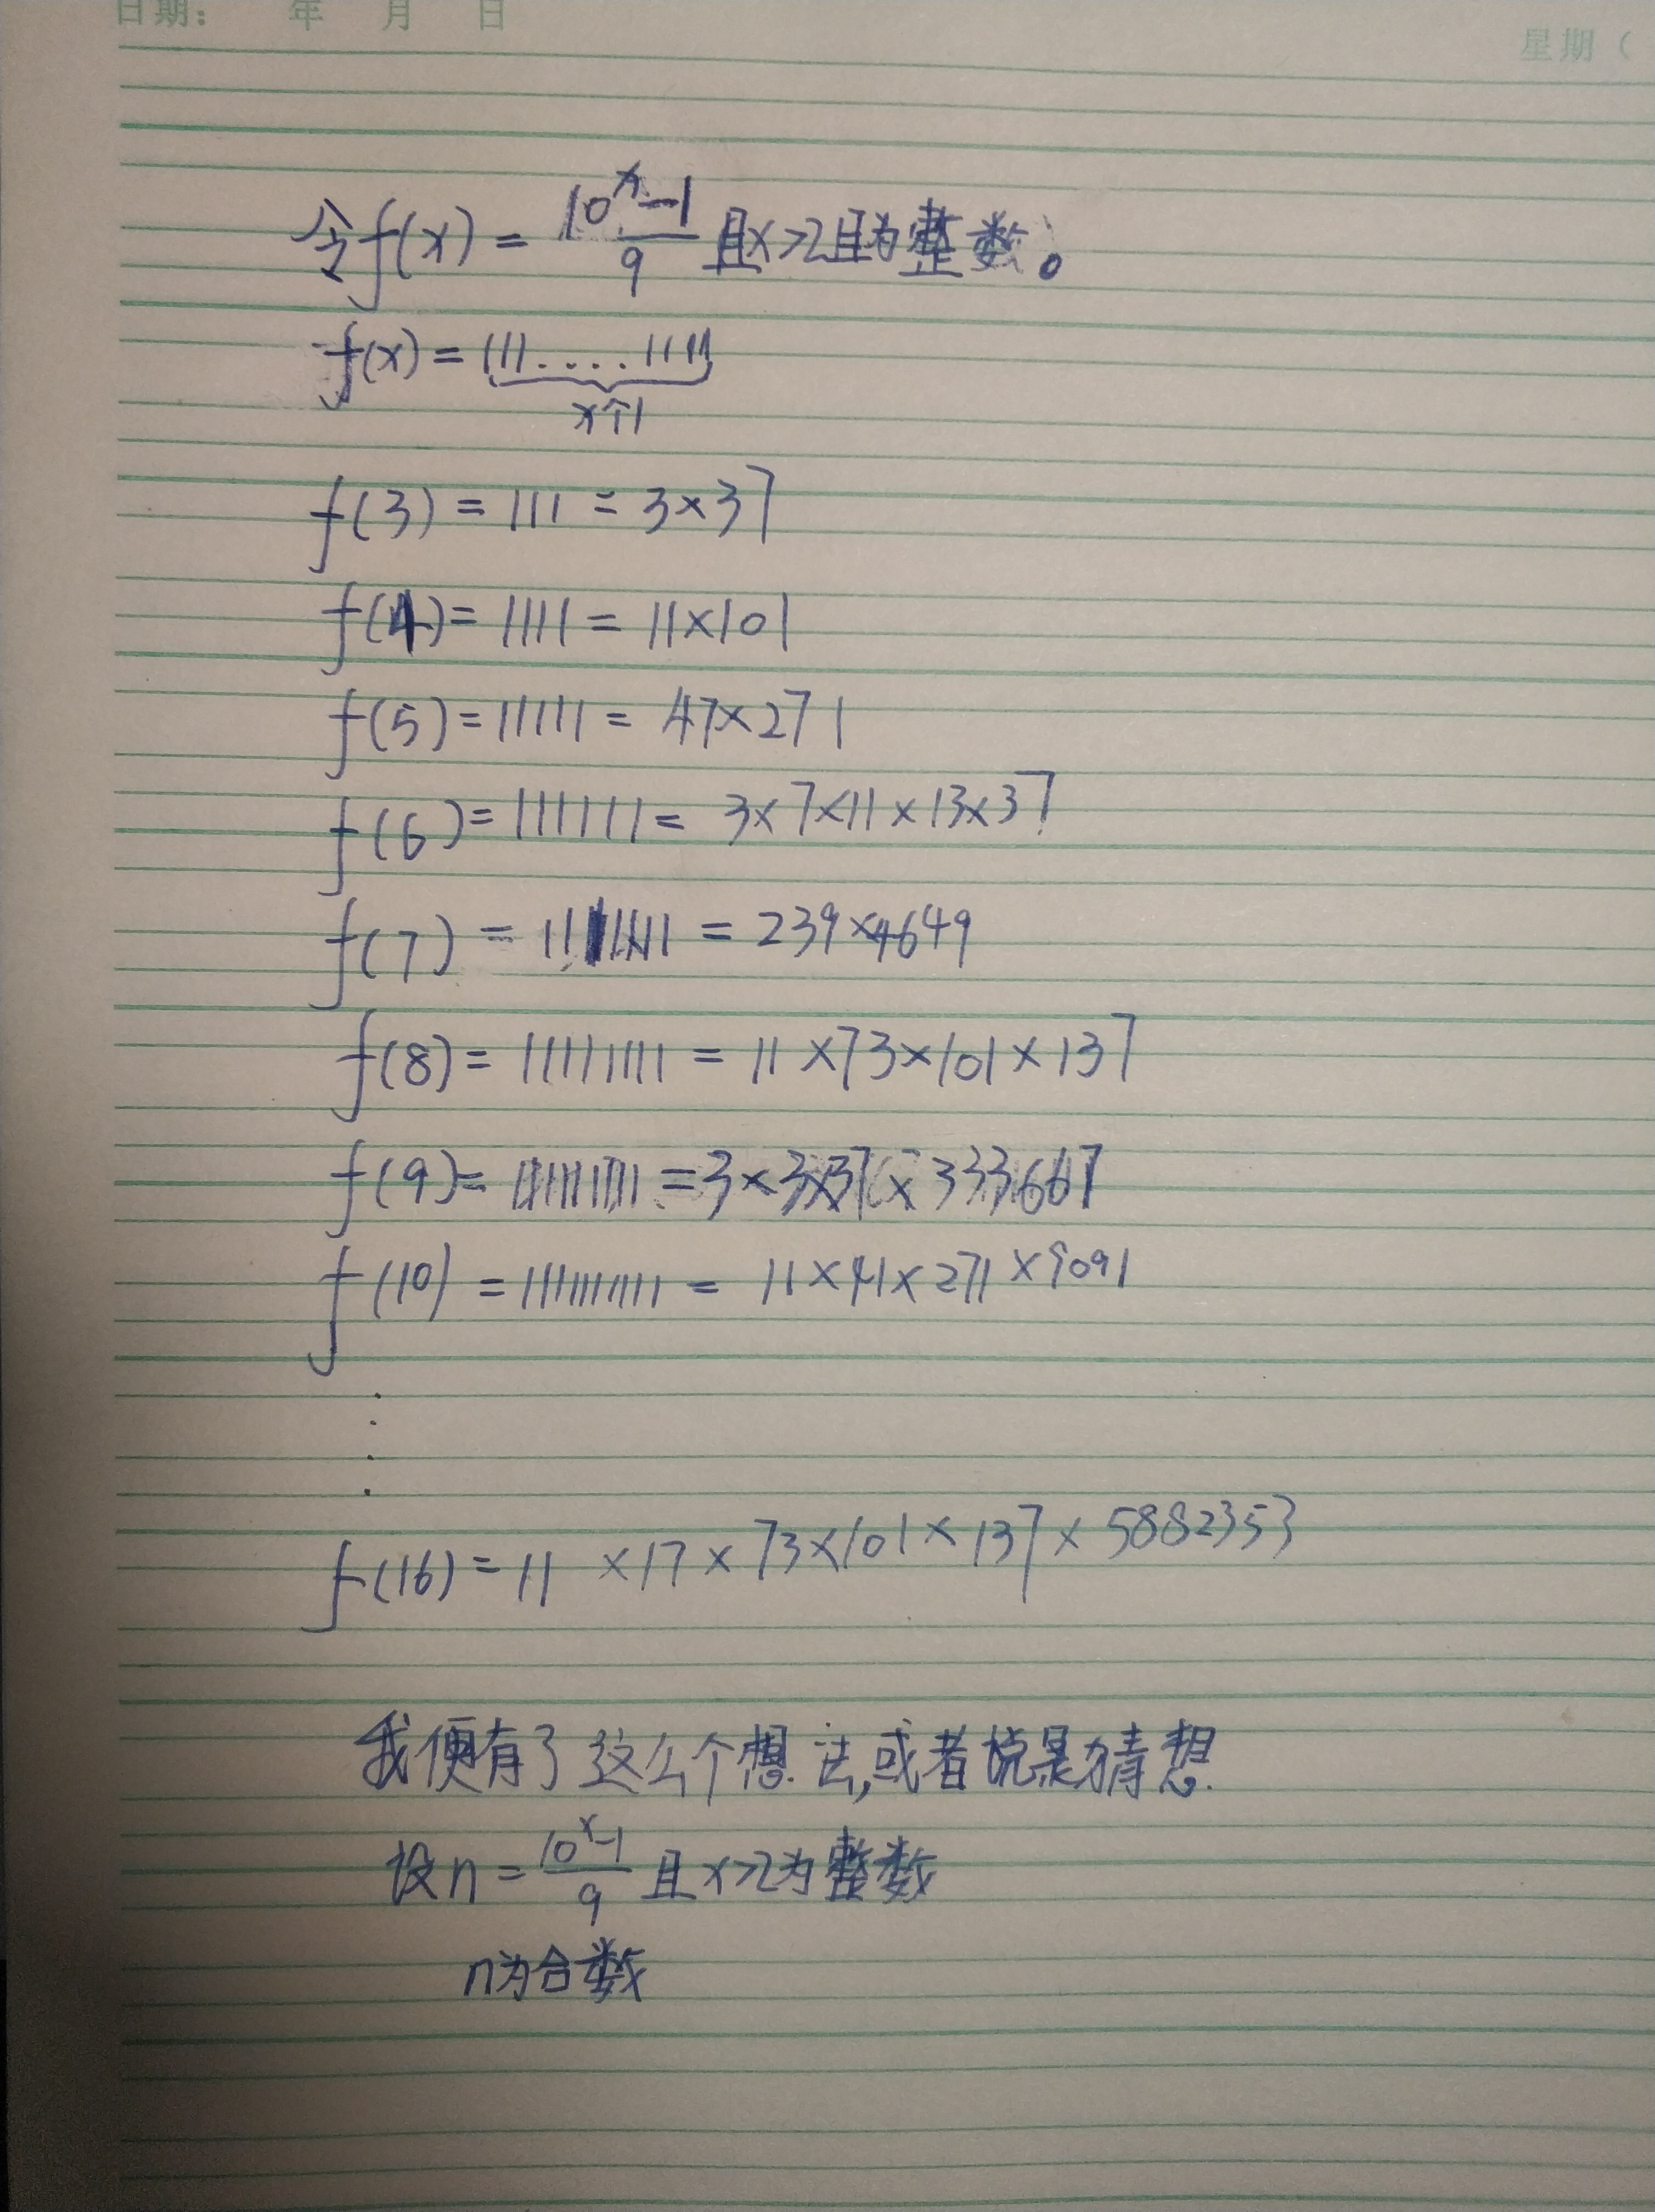 日期: 年 月 日
星期(
令f(x) = \frac{10^x-1}{9} 且x>2且为整数。
f(x) = 111....1111
x个1
f(3) = 111 = 3×37
f(4) = 1111 = 11×101
f(5) = 11111 = 47×271
f(6) = 111111 = 3×7×11×13×37
f(7) = 1111111 = 239×4649
f(8) = 11111111 = 11×73×101×137
f(9) = 111111111 = 3×3×37×333667
f(10) = 1111111111 = 11×41×271×9091
⋮
f(16) = 11×17×73×101×137×5882353
我便有了这么个想法,或者说是猜想.
设n = \frac{10^x-1}{9} 且x>2为整数
n为合数